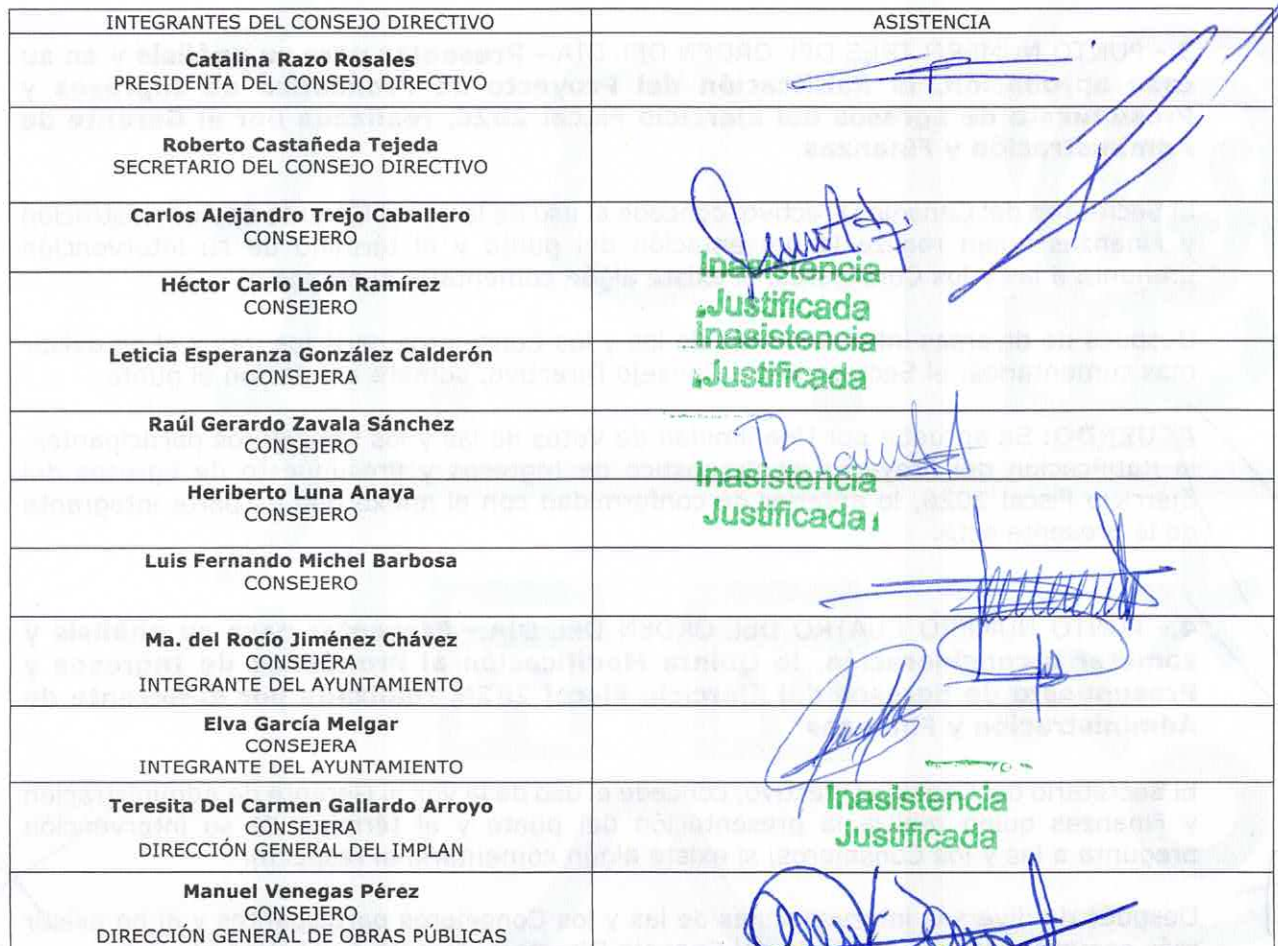 INTEGRANTES DEL CONSEJO DIRECTIVO ASISTENCIA
Catalina Razo Rosales
PRESIDENTA DEL CONSEJO DIRECTIVO
Roberto Castañeda Tejeda
SECRETARIO DEL CONSEJO DIRECTIVO
Carlos Alejandro Trejo Caballero
CONSEJERO
Héctor Carlo León Ramírez
CONSEJERO
Inasistencia
Justificada
Leticia Esperanza González Calderón
CONSEJERA
Inasistencia
Justificada
Raúl Gerardo Zavala Sánchez
CONSEJERO
Heriberto Luna Anaya
CONSEJERO
Inasistencia
Justificada
Luis Fernando Michel Barbosa
CONSEJERO
Ma. del Rocío Jiménez Chávez
CONSEJERA
INTEGRANTE DEL AYUNTAMIENTO
Elva García Melgar
CONSEJERA
INTEGRANTE DEL AYUNTAMIENTO
Teresita Del Carmen Gallardo Arroyo
CONSEJERA
DIRECCIÓN GENERAL DEL IMPLAN
Inasistencia
Justificada
Manuel Venegas Pérez
CONSEJERO
DIRECCIÓN GENERAL DE OBRAS PÚBLICAS